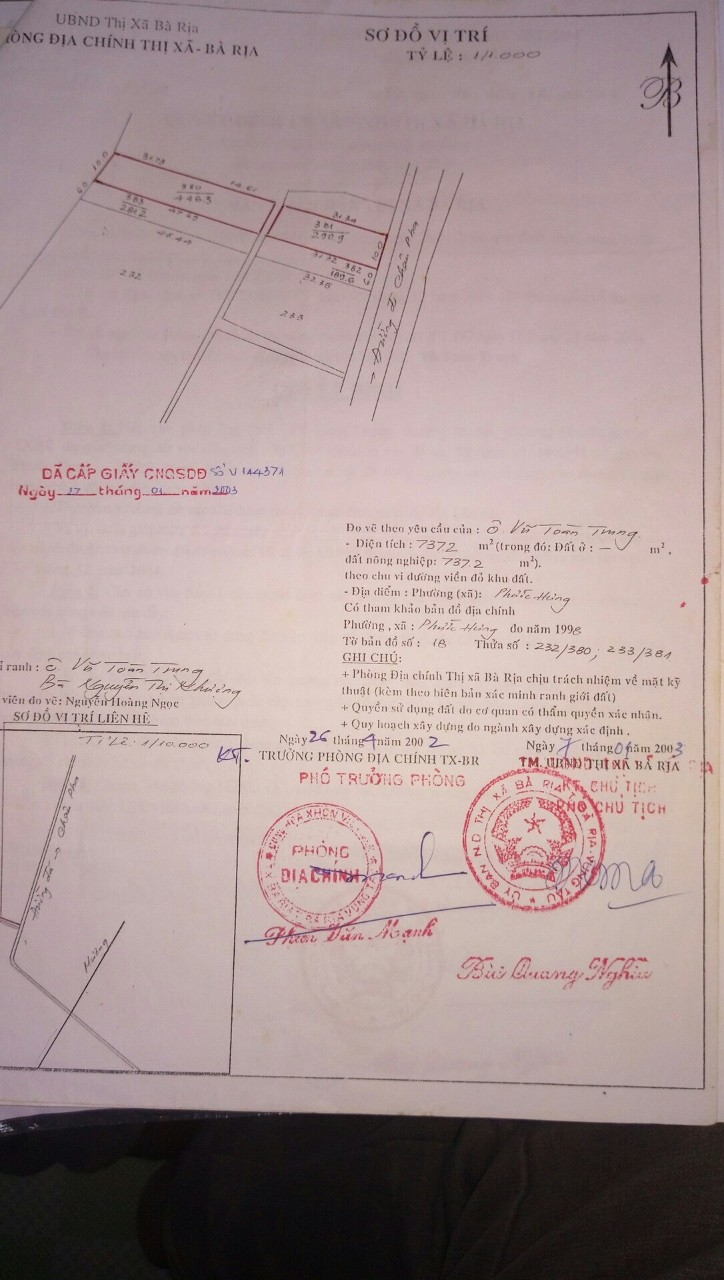 UBND Thị Xã Bà Rịa
ÒNG ĐỊA CHÍNH THỊ XÃ- BÀ RỊA
SƠ ĐỒ VỊ TRÍ
TỶ LỆ : 1/1.000
B
10.0
6.0
380
446.3
383
281.2
381
290.9
10.0
382
189.6
6.0
232
233
→ Đường đi Châu Pha
ĐÃ CẤP GIẤY CNQSDĐ Số V
Ngày 27 tháng 01 năm 2003
Đo vẽ theo yêu cầu của : Ô. Vũ Toàn Trung
- Diện tích : 737.2 m² (trong đó: Đất ở : — m² ,
đất nông nghiệp: 737.2 m²).
theo chu vi đường viền đỏ khu đất.
- Địa điểm : Phường (xã): Phước Hưng
Có tham khảo bản đồ địa chính
Phường , xã : Phước Hưng do năm 1998
Tờ bản đồ số : 18 Thửa số : 232/380 ; 233/381
GHI CHÚ:
+ Phòng Địa chính Thị xã Bà Rịa chịu trách nhiệm về mặt kỹ
thuật (kèm theo biên bản xác minh ranh giới đất)
+ Quyền sử dụng đất do cơ quan có thẩm quyền xác nhận.
+ Quy hoạch xây dựng do ngành xây dựng xác định .
ỉ ranh : Ô Vũ Toàn Trung
Bà Nguyễn Thị Khương
viên đo vẽ: Nguyễn Hoàng Ngọc
SƠ ĐỒ VỊ TRÍ LIÊN HỆ
Tỉ Lệ : 1/10.000
Châu Pha
Mương
Ngày 26 tháng 4 năm 2002
KT. TRƯỞNG PHÒNG ĐỊA CHÍNH TX-BR
PHÓ TRƯỞNG PHÒNG
PHÒNG
ĐỊA CHÍNH
Phan Văn Mạnh
Ngày 7 tháng 01 năm 2003
TM. UBND THỊ XÃ BÀ RỊA
KT. CHỦ TỊCH
PHÓ CHỦ TỊCH
ỦY BAN N D THỊ XÃ BÀ RỊA T. BÀ RỊA-VŨNG TÀU
Bùi Quang Nghĩa